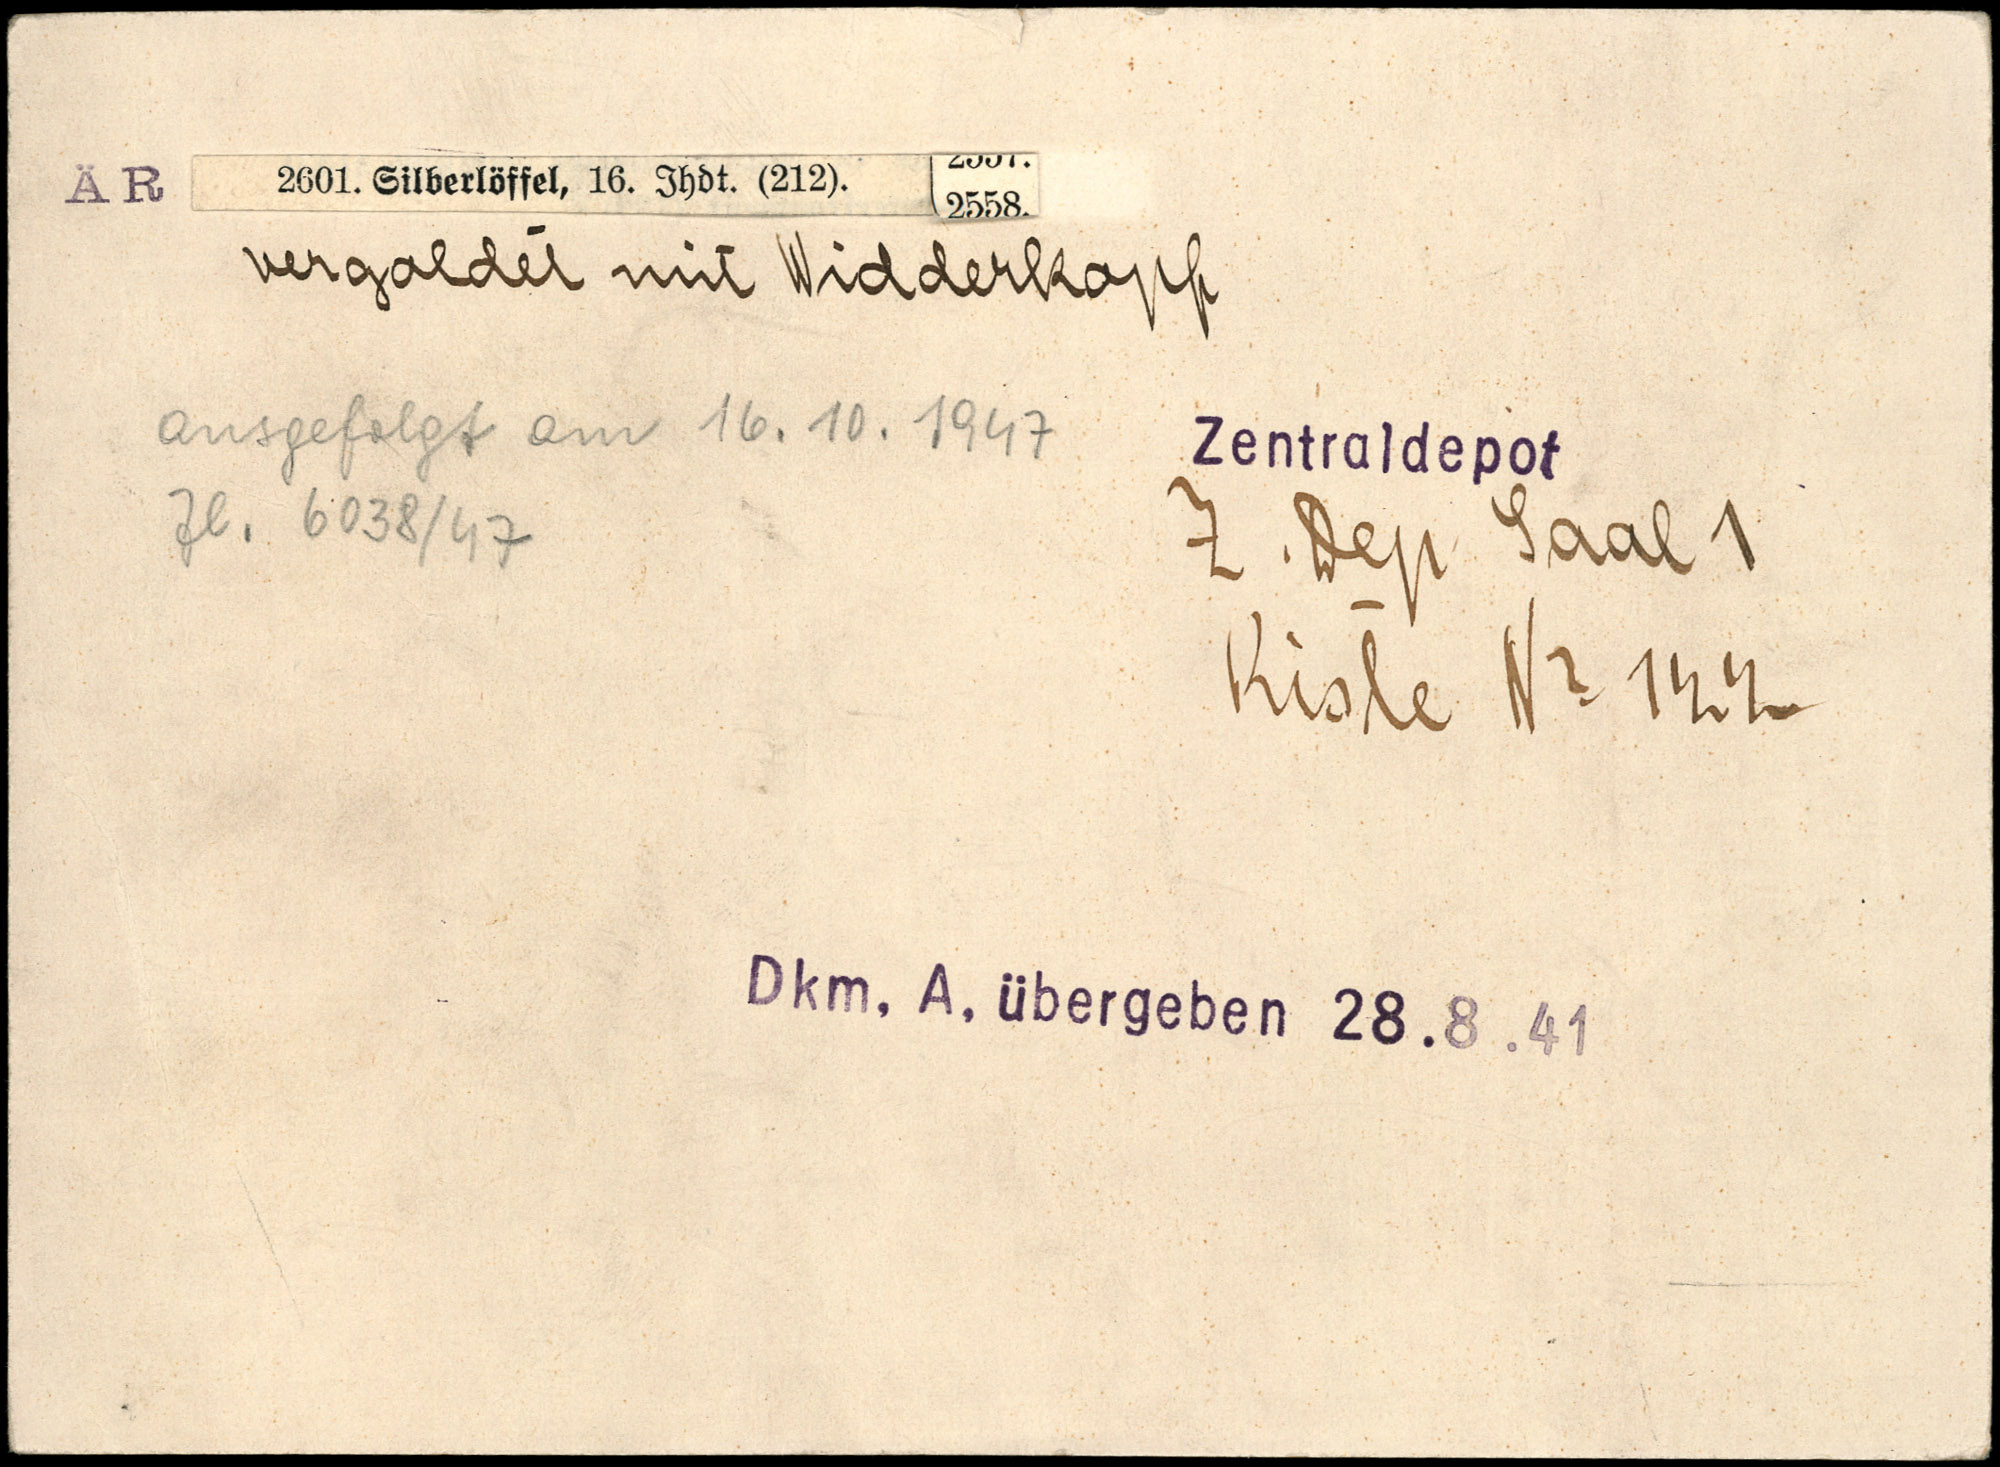 ÄR 2601. Silberlöffel, 16. Jhdt. (212). 2557.
2558.
vergoldet mit Widderkopf
ausgefolgt am 16. 10. 1947
Zl. 6038/47
Zentraldepot
Z. Dep Saal 1
Kiste Nr 122
Dkm. A. übergeben 28.8.41